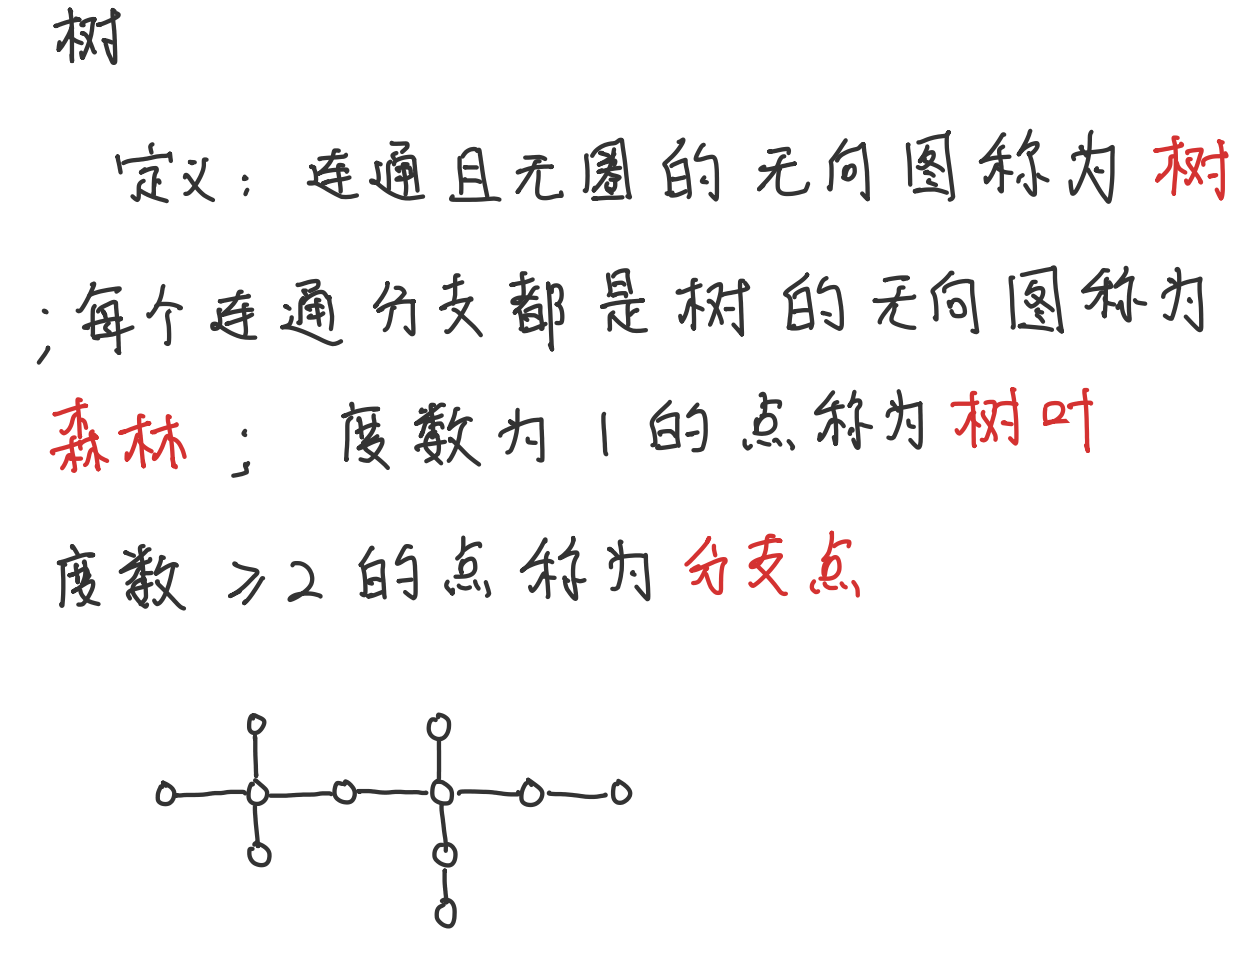 树
定义：连通且无圈的无向图称为树
；每个连通分支都是树的无向图称为
森林；度数为1的点称为树叶
度数≥2的点称为分支点